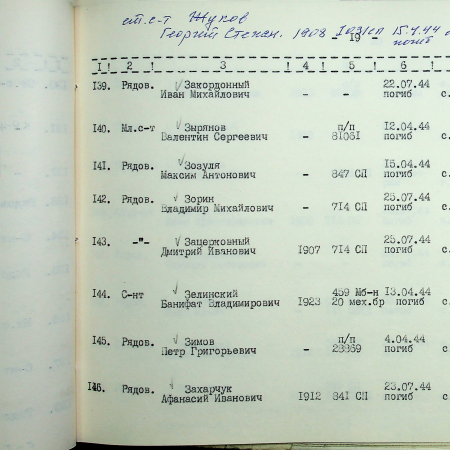 ст. с-т Жуков
Георгий Степан. 1908 1031 сп 15.4.44
погиб
- 19 -
1 ! 2 ! 3 ! 4 ! 5 ! 6 !
139. Рядов. Закордонный 22.07.44
Иван Михайлович - - погиб с.
140. Мл.с-т Зырянов п/п 12.04.44
Валентин Сергеевич - 81061 погиб с.
141. Рядов. Зозуля 15.04.44
Максим Антонович - 847 СП погиб с.
142. Рядов. Зорин 25.07.44
Владимир Михайлович - 714 СП погиб с.
143. -"- Зацерковный 25.07.44
Дмитрий Иванович 1907 714 СП погиб с.
144. С-нт Зелинский 459 Мб-н 13.04.44
Банифат Владимирович 1923 20 мех.бр погиб с.
145. Рядов. Зимов п/п 4.04.44
Петр Григорьевич - 28869 погиб с.
146. Рядов. Захарчук 23.07.44
Афанасий Иванович 1912 841 СП погиб с.